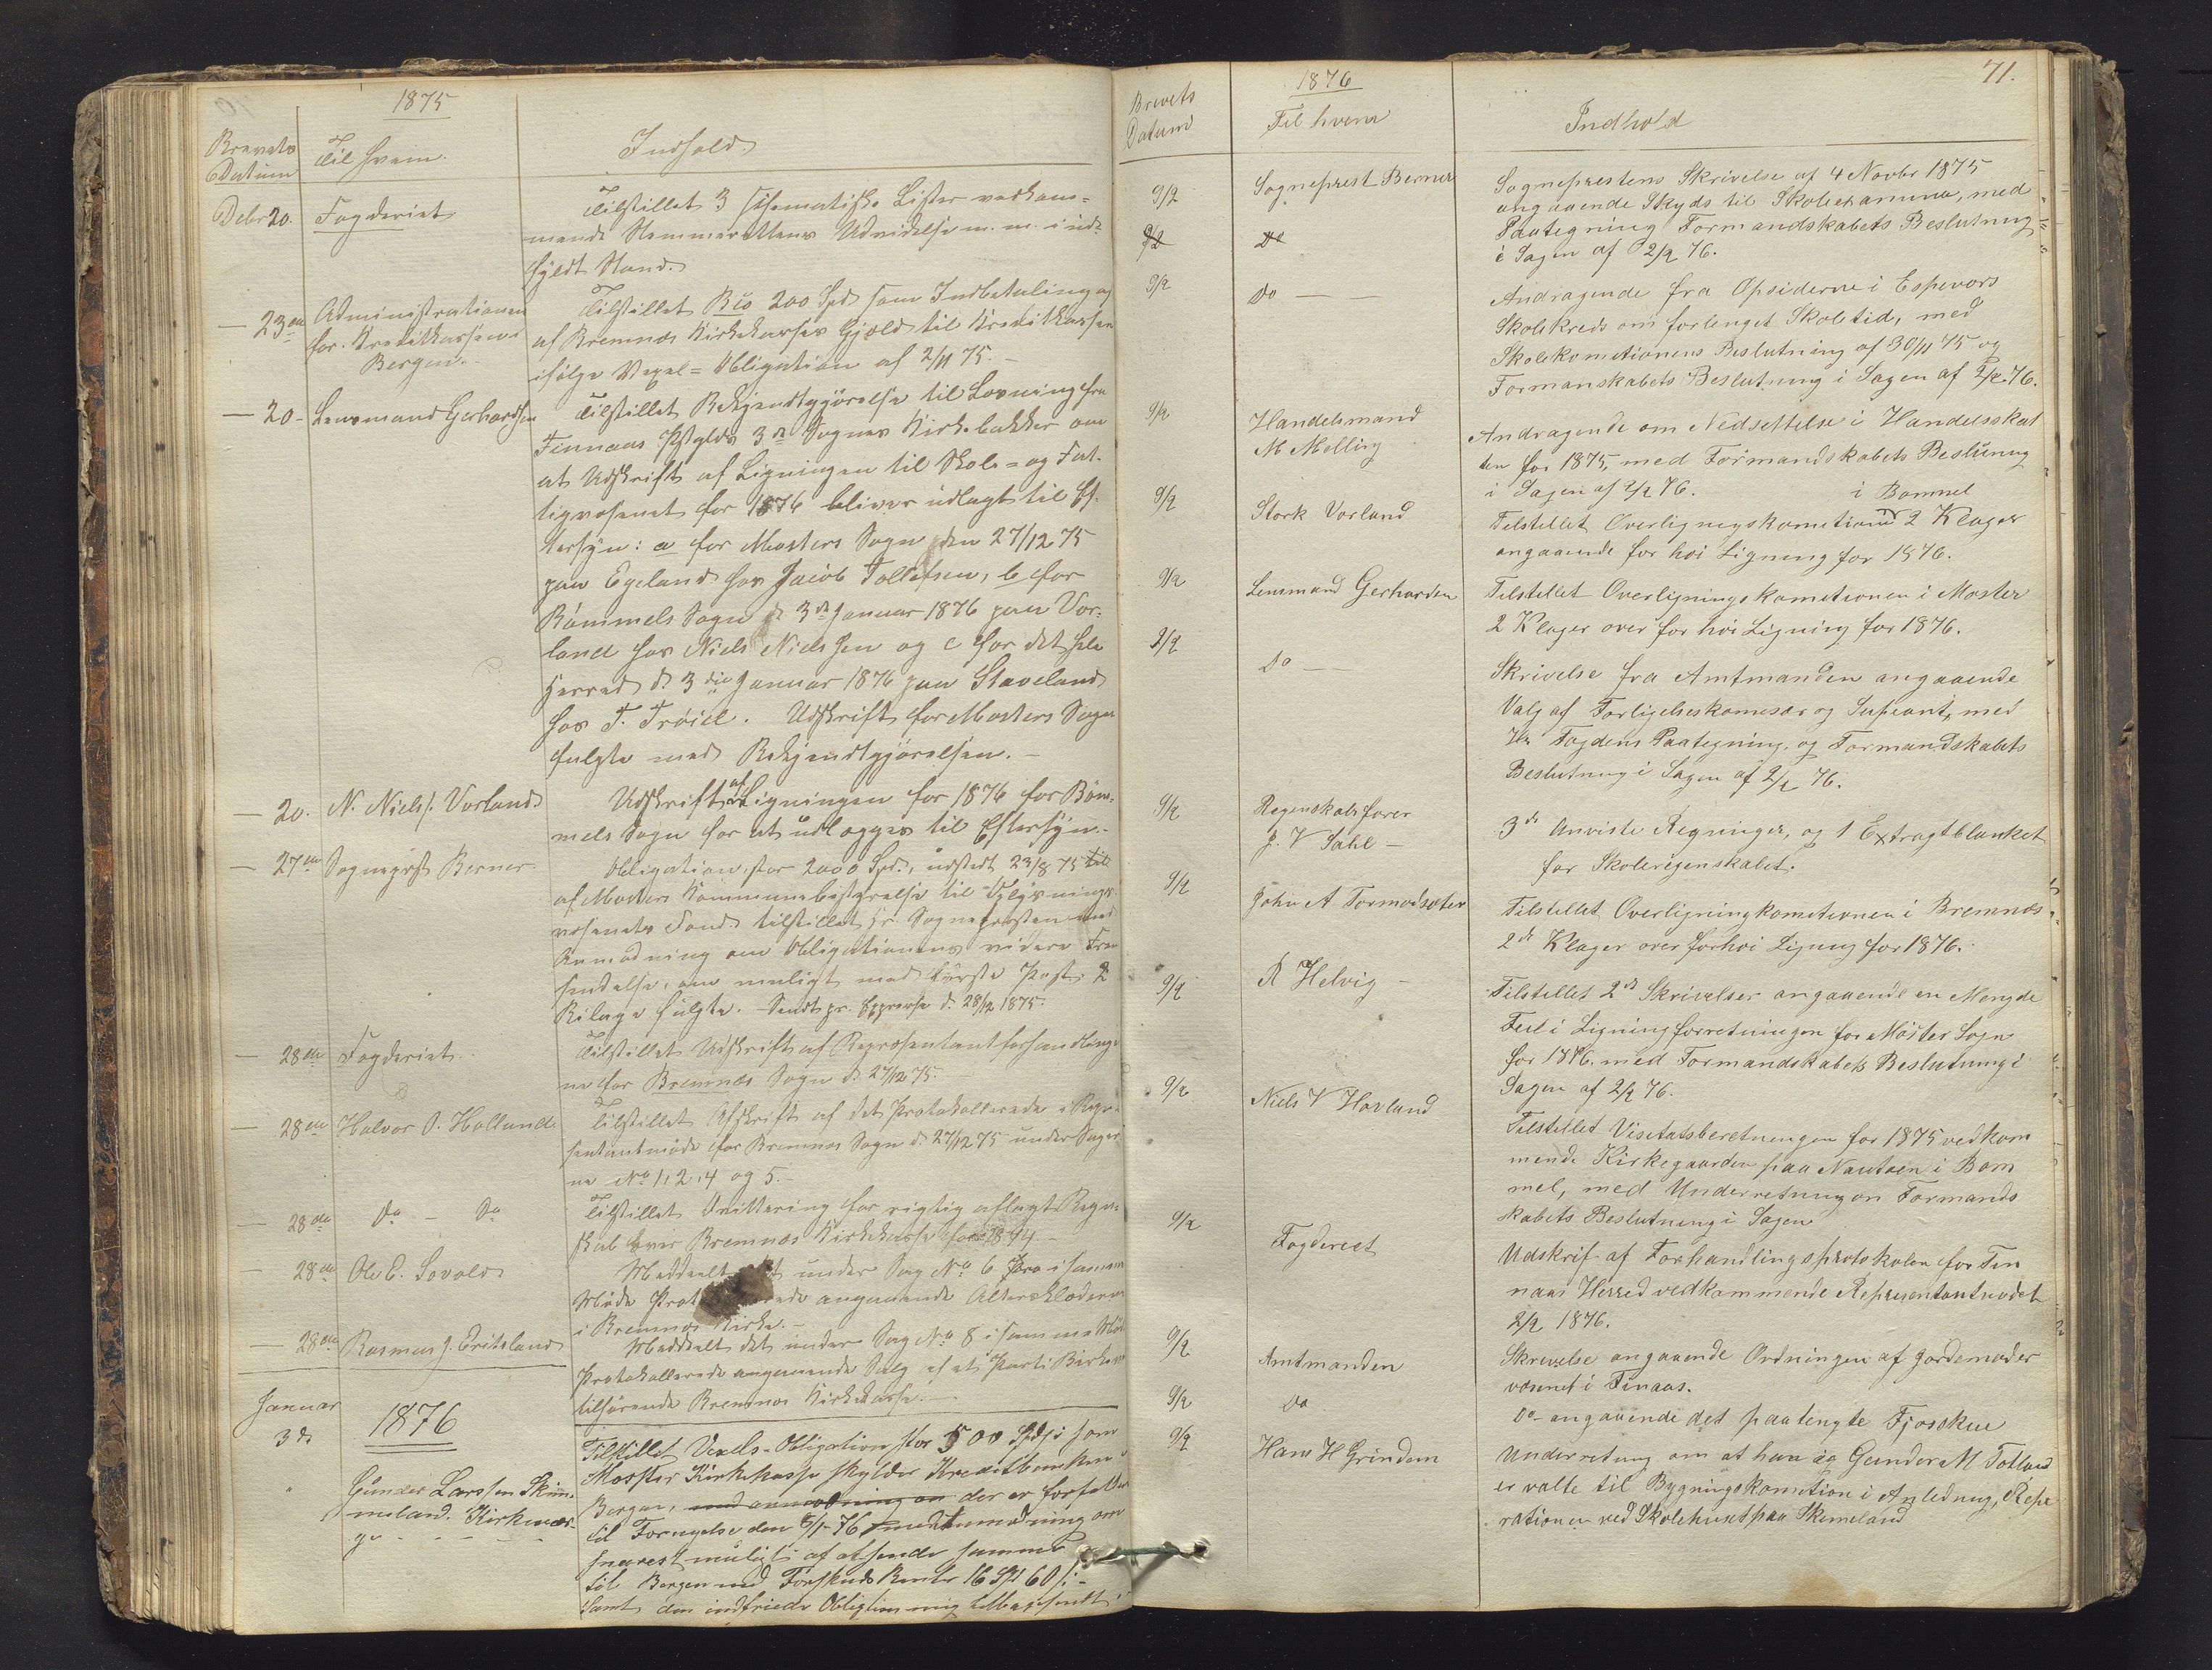 1875
Brevets
Datum
Til hvem.
Indhold.
Debr 20.
Fogderiet
Tilstillet 3 schematiske Lister vedkom=
mende Stemmerettens Udvidelse m. m. i ud=
fyldt Stand.
— 23de
Administrationen
for Kreditkassen i
Bergen.
Tilstillet Bco 200 Spd som Indbetaling
af Bremnes Kirkekasses Gjæld til Kreditkassen
ifølge Vexel=Obligation af 2/11 75. —
— 20 -
Lensmand Gerhardsen
Tilstillet Bekjendtgjørelse til Læsning fra
Finnaas Prgjlds 3de Sognes Kirkebakker om
at Udskrift af Ligningen til Skole= og Fat=
tigvæsenet for 1876 bliver udlagt til Ef=
tersyn: a for Mosters Sogn den 27/12 75
paa Egeland hos Jacob Tollefsen, b for
Bømmels Sogn d. 3de Januar 1876 paa Vor=
land hos Niels Nielssen og c for det hele
Herred d. 3die Januar 1876 paa Staveland
hos T. Trøiel. Udskrift for Mosters Sogn
fulgte med Bekjendtgjørelsen. —
— 20.
N. Niels. Vorland
Udskrift af Ligningen for 1876 for Bøm=
mels Sogn for at udlægges til Eftersyn. -
— 27de
Sogneprst Berner
Obligation stor 2000 Spd., udstedt 23/8 75
af Mosters Kommunebestyrelse til Oplysnings
væsenets Fond tilstillet Hr. Sognepresten med
Anmodning om Obligationens videre Frem
sendelse, om muligt med første Post. 2
Bilage fulgte. - Sendt pr. Expresse d. 28/12 1875.
— 28de
Fogderiet
Tilstillet Udskrift af Repræsentantforhandlinge
ne for Bremnes Sogn d. 27/12 75.
— 28de
Halvor O. Hollund
Tilstillet Afskrift af det Protokollerede i Repr-
sentantmøde for Bremnes Sogn d. 27/12 75 under Sager
ne No 1, 2, 4 og 5. —
— 28de
do — do
Tilstillet Qvittering for rigtig aflagt Regn=
skab over Bremnes Kirkekasse for 1874 —
— 28de
Ole E. Sovold
Meddeelt under Sag No 6 i samme
Møde angaaende Alterklæderne
i Bremnes Kirke. —
— 28de
Rasmus J. Eritsland
Meddeelt det under Sag No 8 i samme Møde
Protokollerede angaaende Salg af et Parti
tilhørende Bremnes Kirkekasse.
Januar
3de
1876
Gunder Larssen Skim=
meland. Kirkevær=
ge
Tilstillet Vexels-Obligation stor 500 Spd som
Moster Kirkekasse skylder Kreditbanken i
Bergen, med anmodning om der er forfalden
til Fornyelse den 6/1-76 med anmodning om
snarest muligt af at sende samme
til Bergen med Forskuds Renter 16 Spd 60 s -
samt den indfriede Obligtion mig tilbagesendt
71.
1876
Brevets
Datum
Til hvem
Indhold
9/2
Sogneprest Berner
Sogneprestens Skrivelse af 4 Novbr 1875
angaaende Skyds til Skoleexamina, med
Paategning Formandskabets Beslutning
i Sagen af 2/2 76.
9/2
Do
9/2
Do — —
Andragende fra Opsiderne i Espevors
Skolekreds om forlenget Skoletid, med
Skolekomitionens Beslutning af 30/11 75 og
Formanskabets Beslutning i Sagen af 2/2 76.
9/2
Handelsmand
M Melling
Andragende om Nedsettelse i Handelsskat
ten for 1875, med Formandskabets Beslunng
i Sagen af 2/2 76.
9/2
Stork Vorland
i Bommel
Tilstillet Overligningskomitionen 2 Klager
angaaende for høi Ligning for 1876.
9/2
Lensmand Gerharden
Tilstillet Overligningskomitionen i Moster
2 Klager over for høi Ligning for 1876.
9/2
Do —
Skrivelse fra Amtmanden angaaende
Valg af Forligelseskomesær og Supeant, med
Hr Fogdens Paategning, og Formandskabets
Beslutning i Sagen af 2/2 76.
9/2
Regenskabsfører
J. V Sahl —
3de Anviste Regninger, og 1 Extragtblanket
for Skoleregenskabet.
9/2
John A Tormodsæter
Tilstillet Overligningkomitionen i Bremnes
2de Klager over forhøi Ligning for 1876.
9/2
R Helvig —
Tilstillet 2de Skrivelser angaaende en Mengde
Feil i Ligningforretningen for Moster Sogn
for 1876. med Formandskabets Beslutning i
Sagen af 2/2 76.
9/2
Niels V Havland
Tilstillet Visitatsberetningen for 1875 vedkom
mende Kirkegaarden paa Nautøen i Bom
mel, med Underretning om Formands
kabets Beslutning i Sagen
9/2
Fogderiet
Udskrif af Forhandlingsprotokolen for Fin
naas Herred vedkommende Representantmødet
2/2 1876.
9/2
Amtmanden
Skrivelse angaaende Ordningen af Jordemoder
væsenet i Finaas.
9/2
Do
Do angaaende det paatengte Fjosskue
9/2
Hans H Grindem
Underretning om at han og Gunder M Totland
er valte til Bygningskomition i Anledning, Repe
rationen ved Skolehuset paa Skimeland